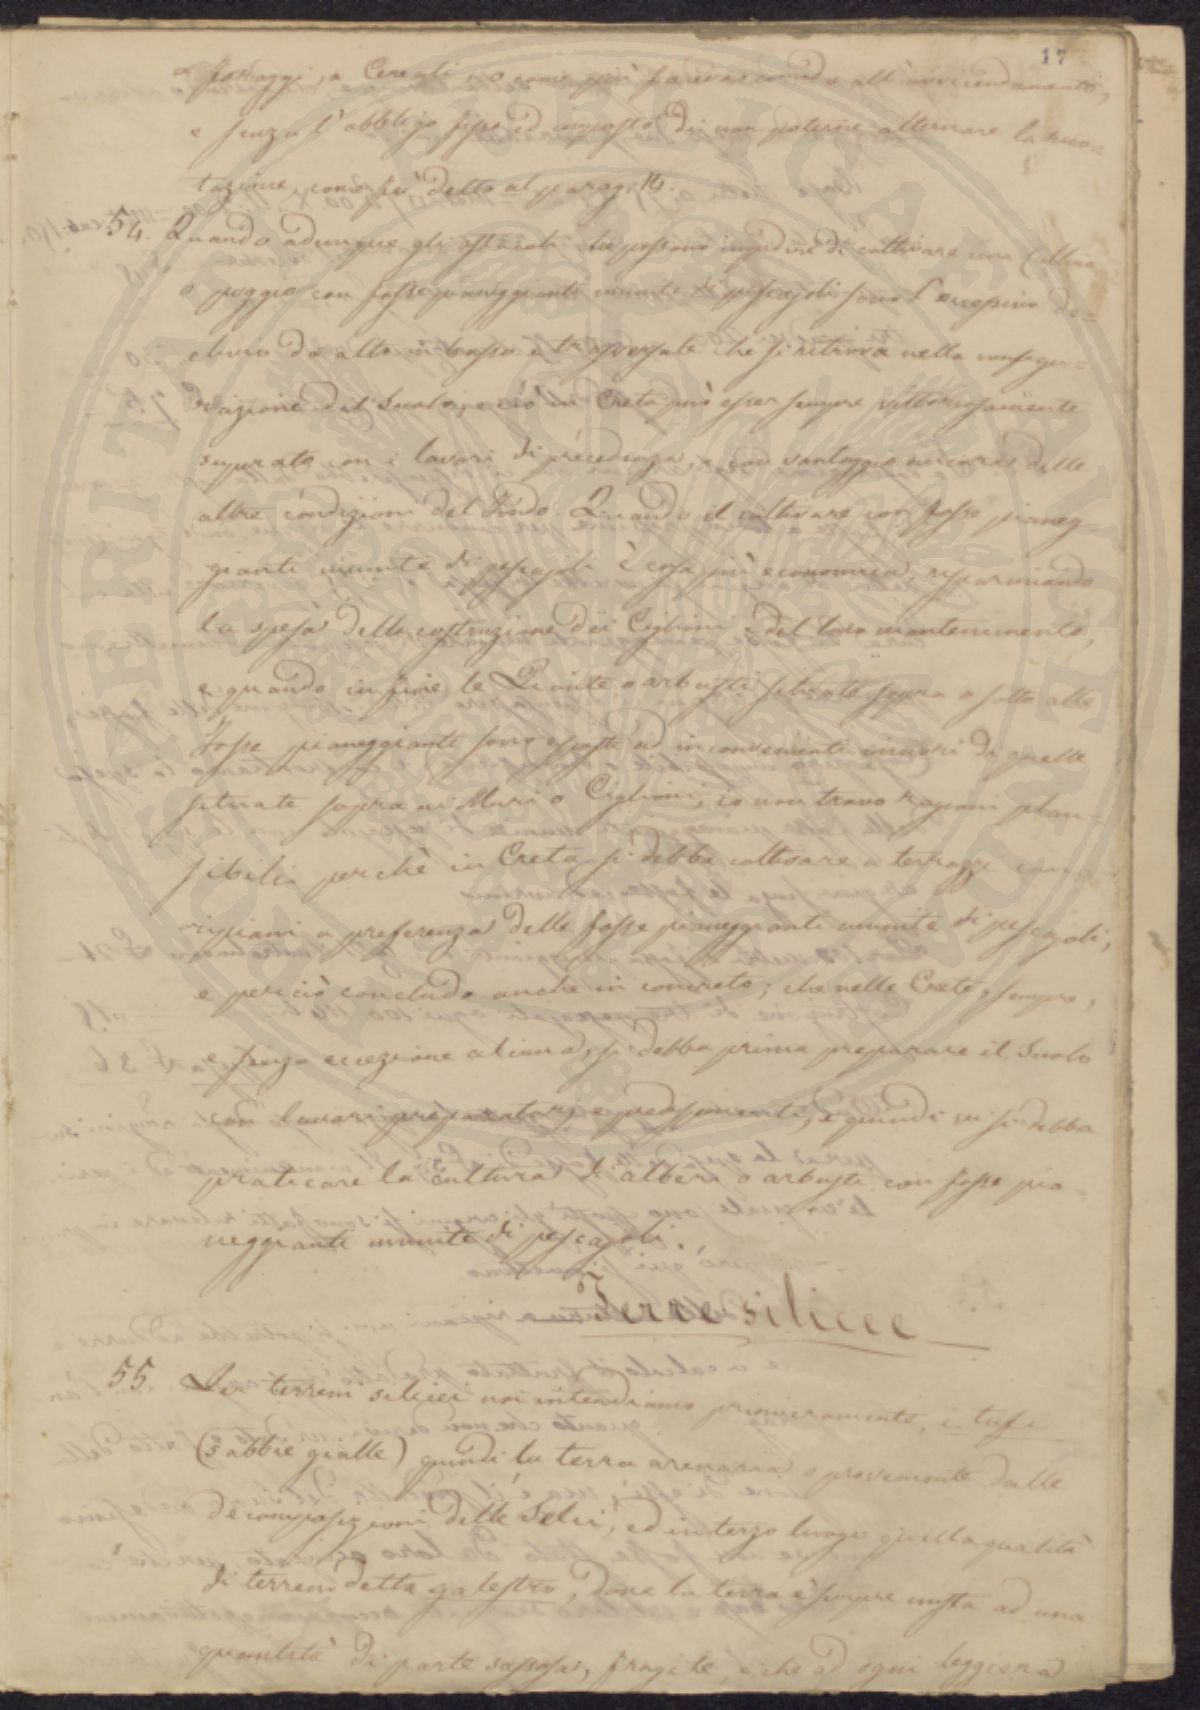 17
o foraggi, a Cereali, o come più facevas comodo all'avvicendamento,
e senza l'obbligo fisso ed imposto di non poterne alternare la ruo=
tazione, come fu detto al parag. 14.
54. Quando adunque gli ostacoli che possono impedire di coltivare una Collina
o poggio con fosse pianeggianti munite di pescajoli sono l'eccessivo de=
clivio da alto in basso e trasversale che si ritrova nella configu=
razione del Suolo, e ciò in Creta può esser sempre vittoriosamente
superato con i lavori di precedenza, e con vantaggio ancora delle
altre condizioni del Fondo. Quando il coltivare con fosse pianeg=
gianti munite di pescajoli è cosa più economica, risparmiando
la spesa della costruzione dei Ciglioni e del loro mantenimento,
e quando infine le Piante o arbusti situate sopra o sotto alle
fosse pianeggianti sono esposte ad inconvenienti minori di quelle
situate sopra ai Muri o Ciglioni, io non trovo ragioni plau-
sibili perchè in Creta si debba coltivare a terrazzi con
ripiani a preferenza delle fosse pianeggianti munite di pescajoli,
e perciò concludo anche in concreto; che nelle Crete, sempre,
e senza eccezione alcuna, si debba prima preparare il Suolo
con lavori preparatorj e predisponenti, e quindi vi si debba
praticare la cultura di alberi o arbusti con fosse pia-
neggianti munite di pescajoli.
Terre silicee
55. Per terreni silicei noi intendiamo primieramente, i tufi
(sabbie gialle) quindi la terra arenaria o proveniente dalle
decomposizioni delle Selci, ed in terzo luogo quella qualità
di terreni detta galestro, dove la terra è sempre mista ad una
quantità di parte sassosa, fragile, e che ad ogni leggiera